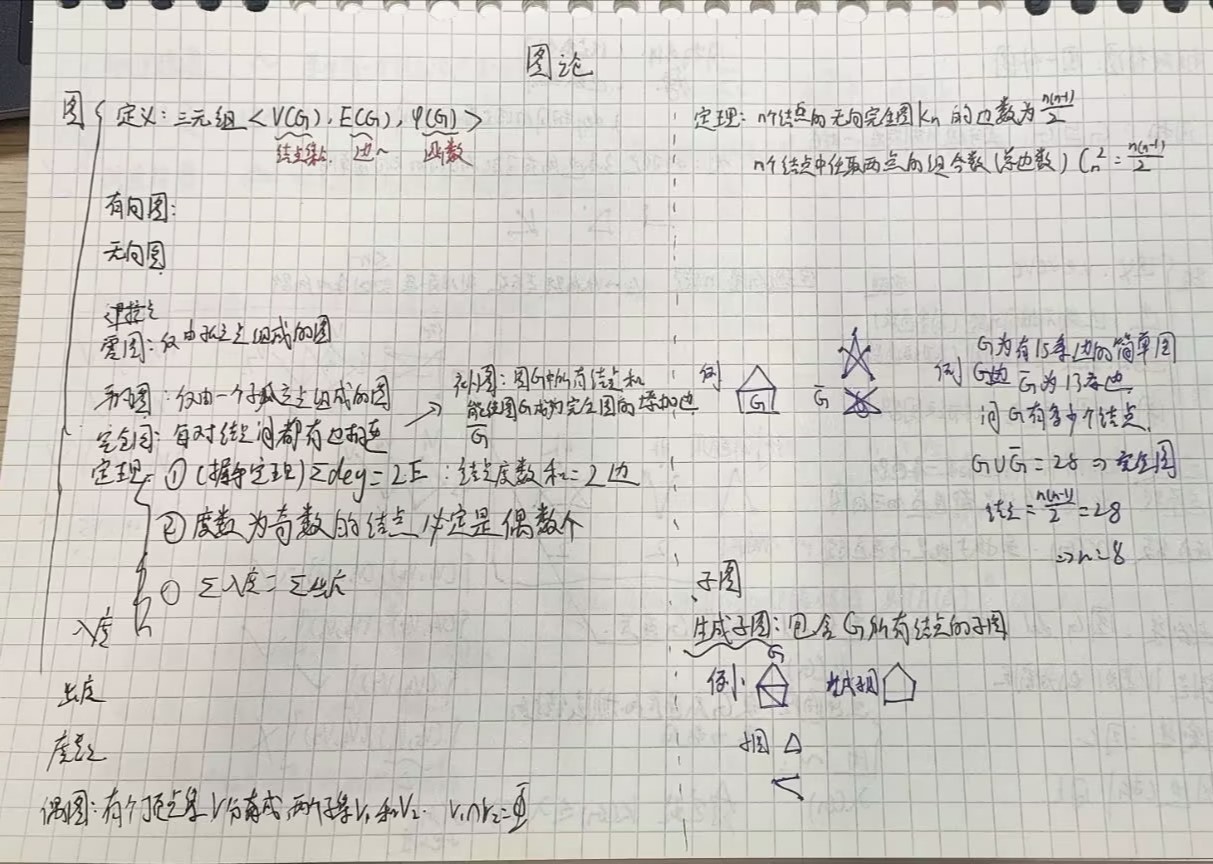 图论
图
定义：三元组 <V(G), E(G), φ(G)>
结点集 边~ 函数
有向图：
无向图
邻接点
零图：仅由孤立点组成的图
平凡图：仅由一个孤立点组成的图
完全图：每对结点间都有边相连
补图：图G中所有结点和
能使图G成为完全图的添加边
G̅
定理：① (握手定理) Σdeg=2E：结点度数和=2边
② 度数为奇数的结点 一定是偶数个
① Σ入度=Σ出度
入度
出度
度数
偶图：有个顶点集V分离成两个子集V₁和V₂. V₁∩V₂=Φ
定理：n个结点的无向完全图Kn 的边数为 n(n-1)/2
n个结点中任取两点的组合数(总边数) Cn²=n(n-1)/2
例 G G̅
例 G为有15条边的简单图
G̅为13条边
问G有多少个结点.
G∪G̅=28 ⇒ 完全图
结点=n(n-1)/2=28
⇒n=8
子图
生成子图：包含G所有结点的子图
G
例 生成子图
子图